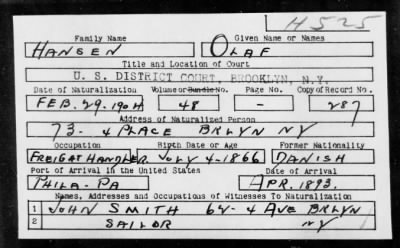 H525
Family Name Given Name or Names
HANSEN OLAF
Title and Location of Court
U. S. DISTRICT COURT, BROOKLYN, N.Y.
Date of Naturalization Volume or Bundle No. Page No. Copy of Record No.
FEB. 29. 1904 48 - 287
Address of Naturalized Person
73- 4 PLACE BKLYN NY
Occupation Birth Date or Age Former Nationality
FREIGHT HANDLER JULY 4-1866 DANISH
Port of Arrival in the United States Date of Arrival
PHILA-PA APR. 1893.
Names, Addresses and Occupations of Witnesses To Naturalization
1 JOHN SMITH 64-4 AVE BKLYN
2 SAILOR NY